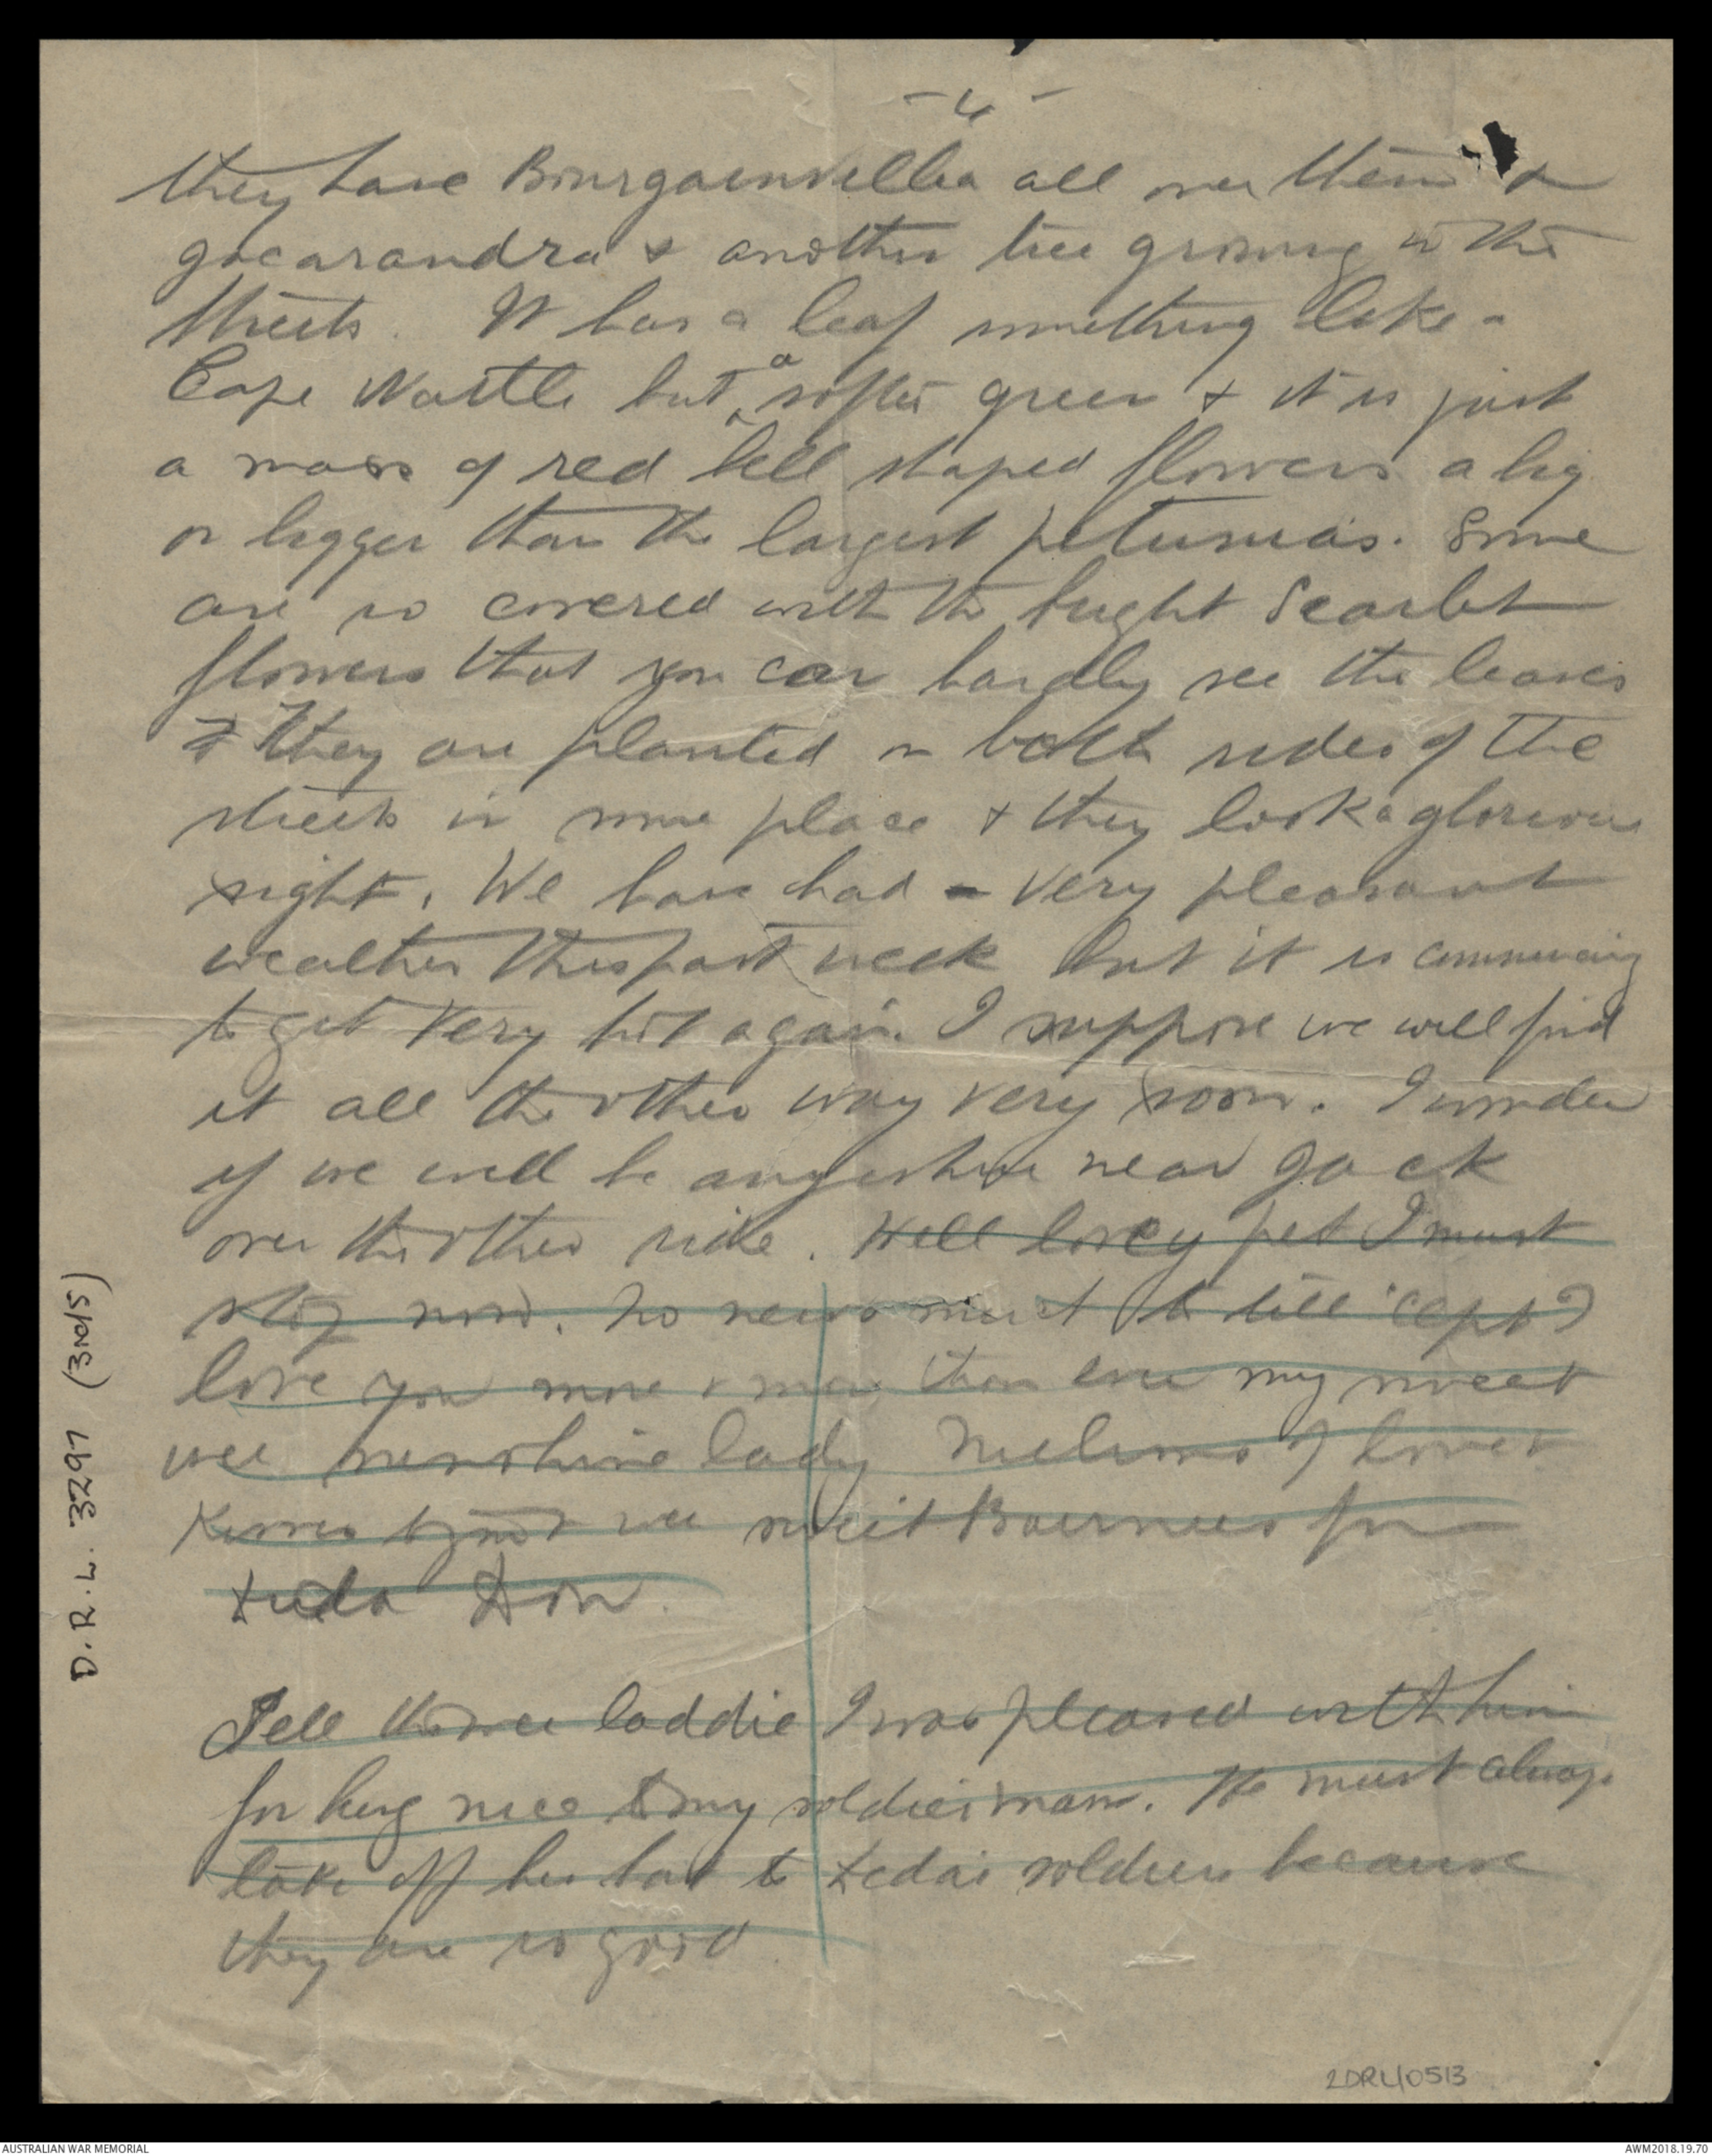 - 4 -
they have Bourgainvillea all over them &
gacarandra & another tree growing in the
streets. It has a leaf something like a
Cape Wattle but a softer green & it is just
a mass of red bell shaped flowers a big
or bigger than the largest petunias. Some
are so covered with the bright Scarlet
flowers that you can hardly see the leaves
They are planted on both sides of the
streets in some place & they look a glorious
sight. We have had very pleasant
weather this past week but it is commencing
to get very hot again. I suppose we will find
it all the other way very soon. I wonder
if we will be anywhere near Jack
over the other side. Well lovey pet I must
stop now. No news to tell 'cept I
love you more & more than ever my sweet
wee sunshine lady of love &
Kisses wee sweet from
Don.
Tell the wee laddie I was pleased with him
for being nice to my soldier man. He must always
take off his hat to soldiers because
they are so good
D.R.L. 3297 (3rd/S)
2DRL/0513
AUSTRALIAN WAR MEMORIAL
AWM2018.19.70